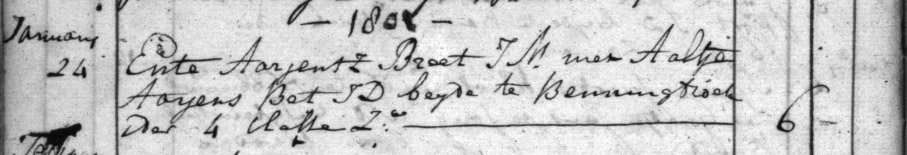 - 180 -
January
24
Ente Aarjentz Breet J M met Aaltje
Aarjens Bet J D beyde te Benningbroek
der 4 Classe 6 -